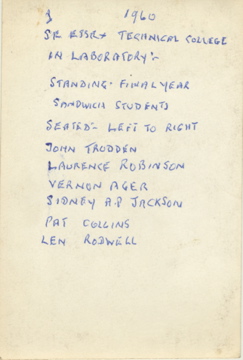 1960
SE ESSEX TECHNICAL COLLEGE
IN LABORATORY:-
STANDING - FINAL YEAR
SANDWICH STUDENTS
SEATED:- LEFT TO RIGHT
JOHN TRODDEN
LAURENCE ROBINSON
VERNON AGER
SIDNEY A P JACKSON
PAT COLLINS
LEN RODWELL